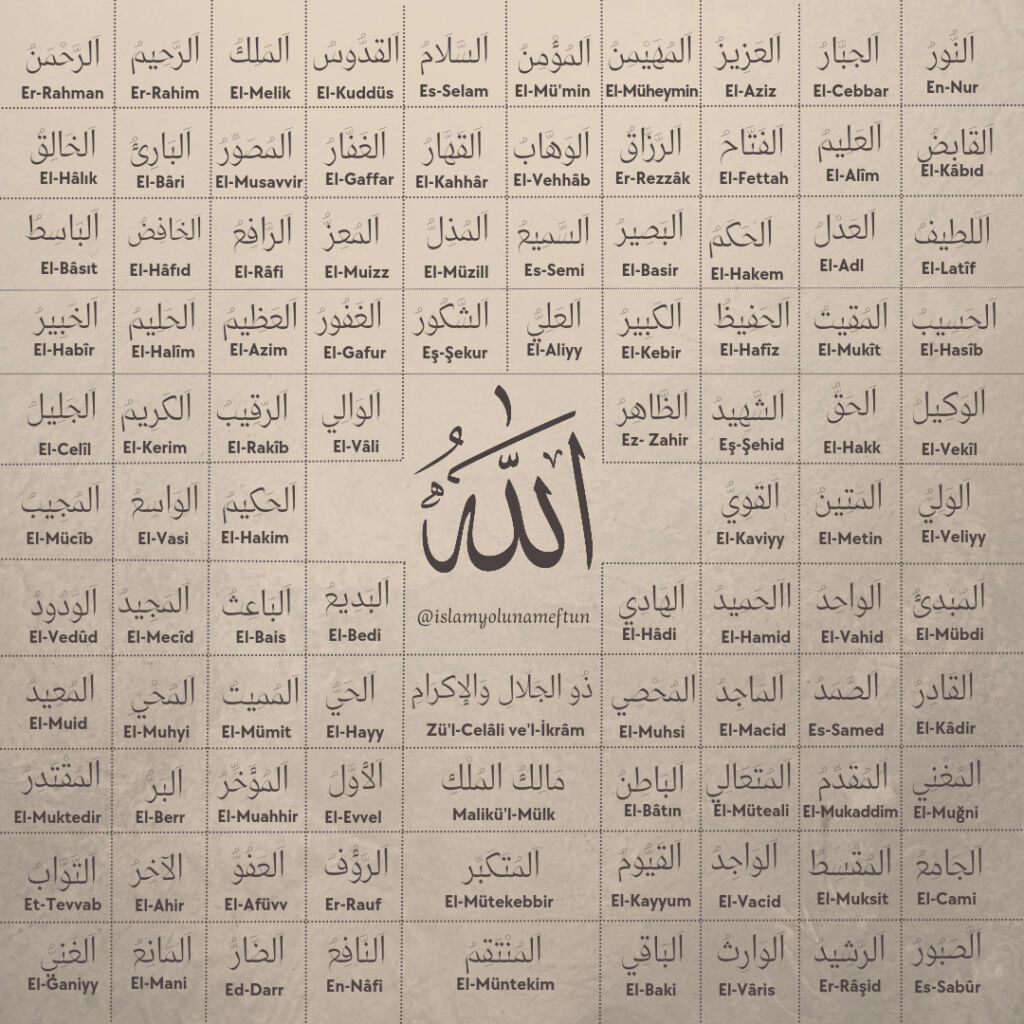 اَلرَّحْمَنُ
Er-Rahman
اَلرَّحِيمُ
Er-Rahim
اَلمَلِكُ
El-Melik
اَلقدُّوسُ
El-Kuddüs
اَلسَّلَامُ
Es-Selam
اَلمُؤْمِنُ
El-Mü'min
اَلمُهَيْمِنُ
El-Müheymin
اَلعَزِيزُ
El-Aziz
اَلجبَّارُ
El-Cebbar
اَلنُّورُ
En-Nur
اَلخَالِقُ
El-Hâlık
اَلبَارِئُ
El-Bâri
اَلمُصَوِّرُ
El-Musavvir
اَلغَفَّارُ
El-Gaffar
اَلقَهَّارُ
El-Kahhâr
اَلوَهَّابُ
El-Vehhâb
اَلرَّزَّاقُ
Er-Rezzâk
اَلفَتَّاحُ
El-Fettah
اَلعَلِيمُ
El-Alîm
اَلقَابِضُ
El-Kâbıd
اَلبَاسِطُ
El-Bâsıt
اَلخافِضُ
El-Hâfıd
اَلرَّافِعُ
El-Râfi
اَلمُعِزُّ
El-Muizz
اَلمُذِلُّ
El-Müzill
اَلسَّمِيعُ
Es-Semi
اَلبَصِيرُ
El-Basir
اَلحَكَمُ
El-Hakem
اَلعَدْلُ
El-Adl
اَللَّطِيفُ
El-Latîf
اَلخَبِيرُ
El-Habîr
اَلحَلِيمُ
El-Halîm
اَلعَظِيمُ
El-Azim
اَلغَفُورُ
El-Gafur
اَلشَّكُورُ
Eş-Şekur
اَلعَلِيُّ
El-Aliyy
اَلكَبِيرُ
El-Kebir
اَلحَفِيظُ
El-Hafîz
اَلمُقِيتُ
El-Mukît
اَلحَسِيبُ
El-Hasîb
اَلجَلِيلُ
El-Celîl
اَلكَرِيمُ
El-Kerim
اَلرّقِيبُ
El-Rakîb
اَلوَالِي
El-Vâli
اَلظَّاهِرُ
Ez- Zahir
اَلشَّهِيدُ
Eş-Şehid
اَلحَقُّ
El-Hakk
اَلوَكِيلُ
El-Vekîl
اَللهُ
اَلمُجِيبُ
El-Mücîb
اَلوَاسِعُ
El-Vasi
اَلحَكِيمُ
El-Hakim
اَلقَوِيُّ
El-Kaviyy
اَلمَتِينُ
El-Metin
اَلوَلِيُّ
El-Veliyy
اَلوَدُودُ
El-Vedûd
اَلمَجِيدُ
El-Mecîd
اَلبَاعِثُ
El-Bais
اَلبَدِيعُ
El-Bedi
@islamyolunameftun
اَلهَادِي
El-Hâdi
االحَمِيدُ
El-Hamid
اَلواحِدُ
El-Vahid
اَلمُبْدِئُ
El-Mübdi
اَلمُعِيدُ
El-Muid
اَلمُحْيِ
El-Muhyi
اَلمُمِيتُ
El-Mümit
اَلحَيُّ
El-Hayy
ذُو الجَلَالِ وَالإكرامِ
Zü'l-Celâli ve'l-İkrâm
اَلمُحْصِي
El-Muhsi
اَلمَاجِدُ
El-Macid
اَلصَّمَدُ
Es-Samed
اَلقَادرُ
El-Kâdir
اَلمُقْتَدرُ
El-Muktedir
اَلبَرُّ
El-Berr
اَلمُؤَخِّرُ
El-Muahhir
اَلأوَّلُ
El-Evvel
مَالكُ المُلْكِ
Malikü'l-Mülk
اَلبَاطِنُ
El-Bâtın
اَلمُتَعَالِي
El-Müteali
اَلمُقَدِّمُ
El-Mukaddim
اَلمُغْنِي
El-Muğni
اَلتَّوَّابُ
Et-Tevvab
اَلآخرُ
El-Ahir
اَلعَفُوُّ
El-Afüvv
اَلرَّؤُفُ
Er-Rauf
اَلمُتَكَبِّر
El-Mütekebbir
اَلقَيُّومُ
El-Kayyum
اَلوَاجِدُ
El-Vacid
اَلمُقْسِطُ
El-Muksit
اَلجَامِعُ
El-Cami
اَلغَنِيُ
El-Ğaniyy
اَلمَانعُ
El-Mani
اَلضَّارُّ
Ed-Darr
اَلنَافعُ
En-Nâfi
اَلمُنْتَقمُ
El-Müntekim
اَلبَاقِي
El-Baki
اَلوَارِثُ
El-Vâris
اَلرَّشِيدُ
Er-Râşid
اَلصَبُورُ
Es-Sabûr